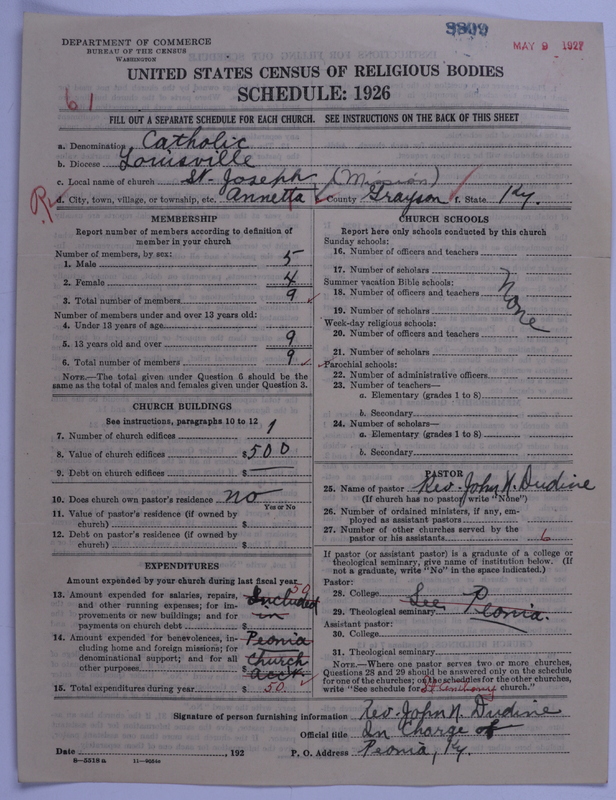 3309
MAY 9 1927
DEPARTMENT OF COMMERCE
BUREAU OF THE CENSUS
WASHINGTON
UNITED STATES CENSUS OF RELIGIOUS BODIES
SCHEDULE: 1926
61
FILL OUT A SEPARATE SCHEDULE FOR EACH CHURCH. SEE INSTRUCTIONS ON THE BACK OF THIS SHEET
a. Denomination Catholic
b. Diocese Louisville
c. Local name of church St. Joseph (Mission)
d. City, town, village, or township, etc. Annetta e. County Grayson f. State Ky.
MEMBERSHIP
Report number of members according to definition of
member in your church
Number of members, by sex:
1. Male 5
2. Female 4
3. Total number of members 9
Number of members under and over 13 years old:
4. Under 13 years of age
5. 13 years old and over 9
6. Total number of members 9
NOTE.—The total given under Question 6 should be
same as the total of males and females given under Question 3.
CHURCH BUILDINGS
See instructions, paragraphs 10 to 12
7. Number of church edifices 1
8. Value of church edifices $500
9. Debt on church edifices $
10. Does church own pastor's residence no
Yes or No
11. Value of pastor's residence (if owned by
church) $
12. Debt on pastor's residence (if owned by
church) $
EXPENDITURES
Amount expended by your church during last fiscal year
13. Amount expended for salaries, repairs, 50
and other running expenses; for im- Included
provements or new buildings; and for in
payments on church debt $
14. Amount expended for benevolences, in- Peonia
cluding home and foreign missions; for
denominational support; and for all church
other purposes $ acct.
15. Total expenditures during year $ 50.
CHURCH SCHOOLS
Report here only schools conducted by this church
Sunday schools:
16. Number of officers and teachers
17. Number of scholars
Summer vacation Bible schools:
18. Number of officers and teachers none
19. Number of scholars
Week-day religious schools:
20. Number of officers and teachers
21. Number of scholars
Parochial schools:
22. Number of administrative officers
23. Number of teachers—
a. Elementary (grades 1 to 8)
b. Secondary
24. Number of scholars—
a. Elementary (grades 1 to 8)
b. Secondary
PASTOR
25. Name of pastor Rev. John N. Dudine
(If church has no pastor, write "None")
26. Number of ordained ministers, if any, em-
ployed as assistant pastors
27. Number of other churches served by the
pastor or his assistants 6
If pastor (or assistant pastor) is a graduate of a college or
theological seminary, give name of institution below. (If
not a graduate, write "No" in the space indicated.)
Pastor:
28. College See
29. Theological seminary Peonia.
Assistant pastor:
30. College
31. Theological seminary
NOTE.—Where one pastor serves two or more churches,
Questions 28 and 29 should be answered only on the schedule
for one of the churches; on the schedules for the other churches,
write "See schedule for St Anthony church."
Signature of person furnishing information Rev. John N. Dudine
Official title In Charge of
Date , 192 P. O. Address Peonia, Ky.
8—5519 a 11—9664c